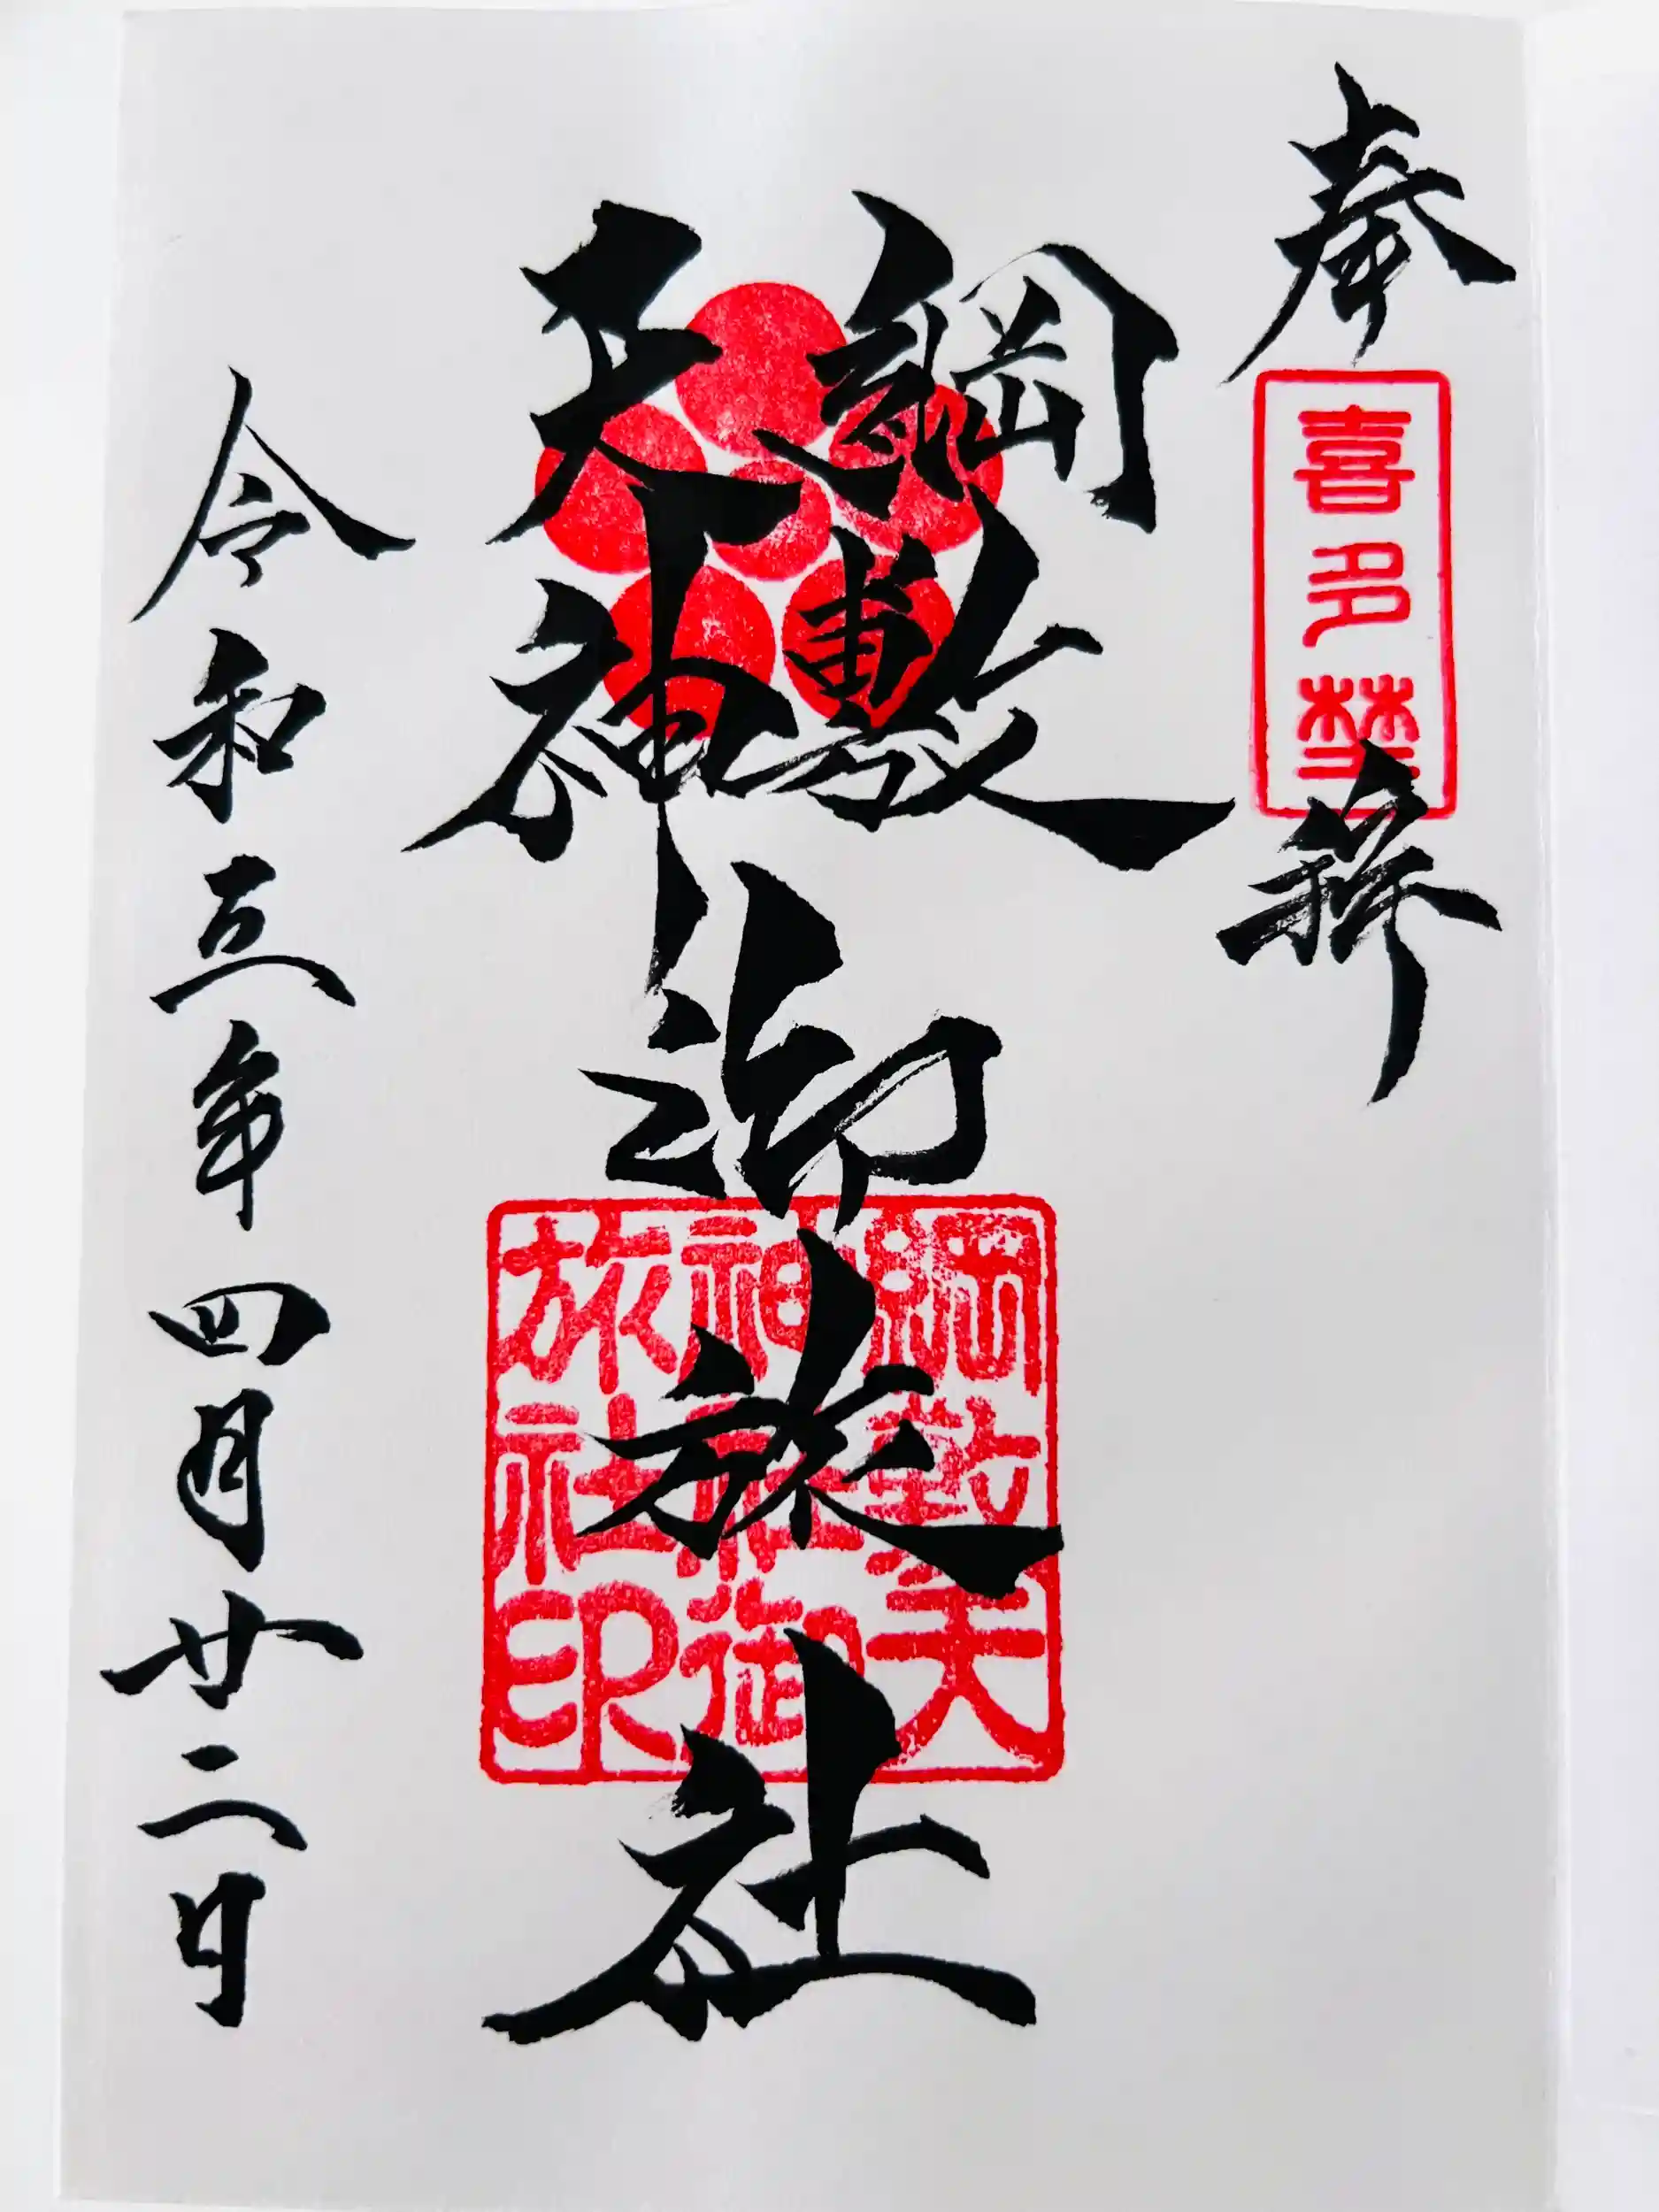 奉拝
喜多埜
綱敷
天神
御旅社
綱敷天
神社御
旅社印
令和五年四月廿二日